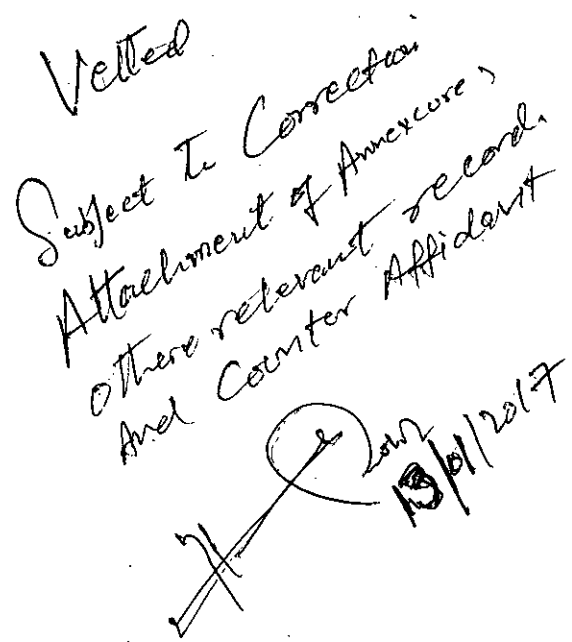 Vetted
Subject To Correction
Attachment of Annexure,
others relevant record.
And Counter Affidavit
13/01/2017